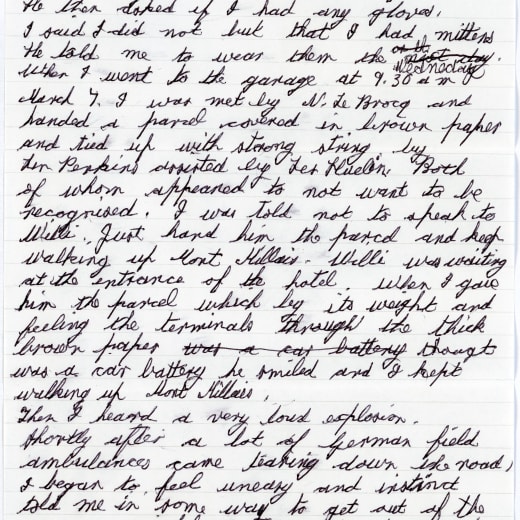 He then asked if I had any gloves,
I said I did not but that I had mittens
He told me to wear them the on the next day. Wednesday
When I went to the garage at 9.30 a m
March 7. I was met by N. Le Brocq and
handed a parcel covered in brown paper
and tied up with strong string by
Len Perkins assisted by Les Huelin. Both
of whom appeared to not want to be
recognised. I was told not to speak to
Willi. Just hand him the parcel and keep
walking up Mont Millais. Willi was waiting
at the entrance of the hotel. When I gave
him the parcel which by its weight and
feeling the terminals through the thick
brown paper was a car battery thought
was a car battery he smiled and I kept
walking up Mont Millais,
Then I heard a very loud explosion.
Shortly after a lot of german field
ambulances came tearing down the road,
I began to feel uneasy and instinct
told me in some way to get out of the